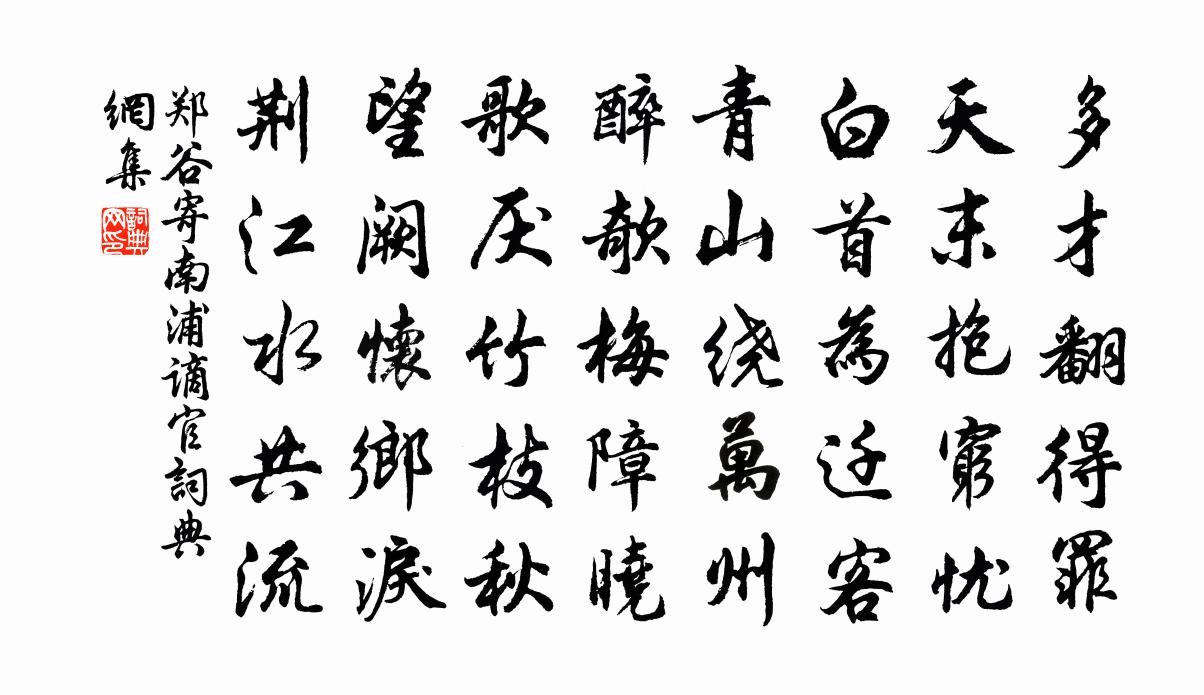 多才翻得罪
天末抱窮忧
白首為迁客
青山绕萬州
醉欹梅障曉
歌厌竹枝秋
望阙懷鄉淚
荆江水共流
郑谷寄南浦谪官詞典
網集
詞典网印